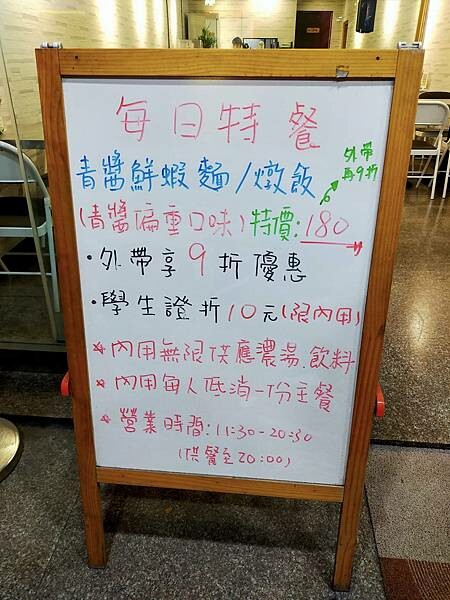 每日特餐
青醬鮮蝦麵/燉飯
外帶
再9折
(青醬偏重口味)特價:180
·外帶享9折優惠
·學生證折10元(限內用)
*內用無限供應濃湯.飲料
*內用每人低消一份主餐
*營業時間:11:30-20:30
(供餐至20:00)